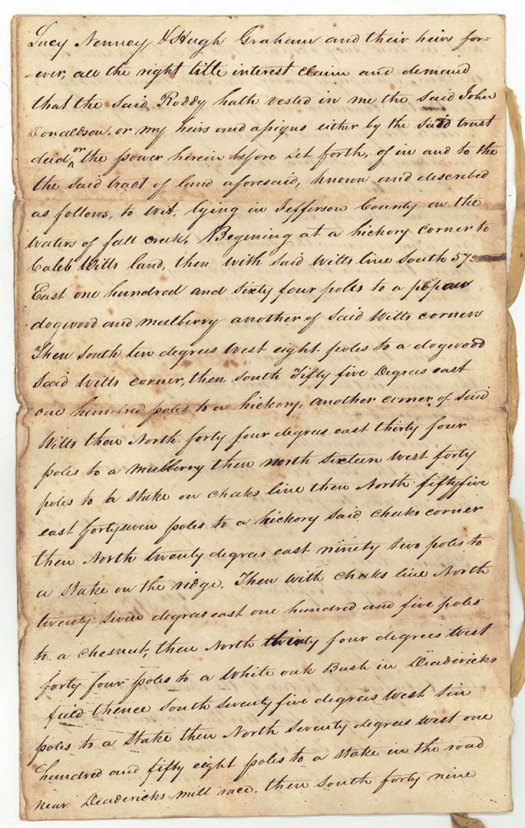 Lucy Nenney & Hugh Graham and their heirs for-
ever, all the right title interest claim and demand
that the said Roddy hath vested in me the said John
Donaldson, or my heirs and assigns either by the said trust
deed, or the power herein before set forth, of in and to the
the said tract of land aforesaid, known and described
as follows, to wit, lying in Jefferson County on the
waters of fall creek, Begening at a hickory corner to
Caleb Witts land, then with said Witts line South 57
East one hundred and sixty four poles to a papaw
dogwood and mulberry another of said Witts corners
Then South ten degrees West eight poles to a dogwood
said Witts corner, then South Fifty five Degrees east
one hundred poles to a hickory, another corner of said
Witts then North forty four degrees east thirty four
poles to a mulberry then north sixteen west forty
poles to a stake on cheaks line then North fiftyfive
east fortyseven poles to a hickory said cheaks corner
then North twenty degrees east ninety two poles to
a stake on the ridge. Then with cheaks line North
twenty seven degrees east one hundred and five poles
to a chesnut, then North thirty four degrees West
forty four poles to a white oak Bush in Deadericks
field thence South seventy five degrees west ten
poles to a stake then North seventy degrees west one
hundred and fifty eight poles to a stake in the road
near Deadericks mill race. then South forty nine